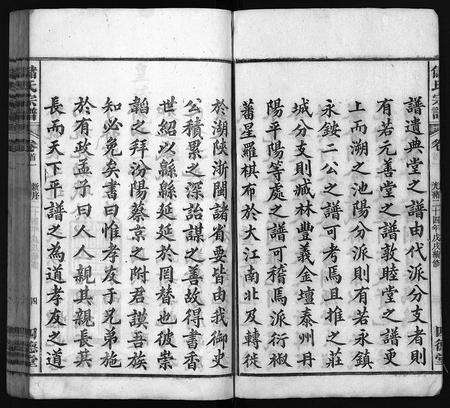 譜遺典堂之譜由代派分支者則
有若元善堂之譜敦睦堂之譜更
上而溯之池陽分派則有若永鎮
永銨二公之譜可考焉且推之莊
城分支則珹林豐義金壇泰州丹
陽平陽等處之譜可稽焉派衍椒
蕃星羅棋布於大江南北及轉徙
於湖陝浙閩諸省要皆由我御史
公積累之深詒謀之善故得書香
世紹以緜緜延延於罔替也彼崇
韜之拜汾陽蔡京之附君謨吾族
知必免矣書曰惟孝友于兄弟施
於有政孟子曰人人親其親長其
長而天下平譜之為道孝友之道
氏宗譜
卷首
四